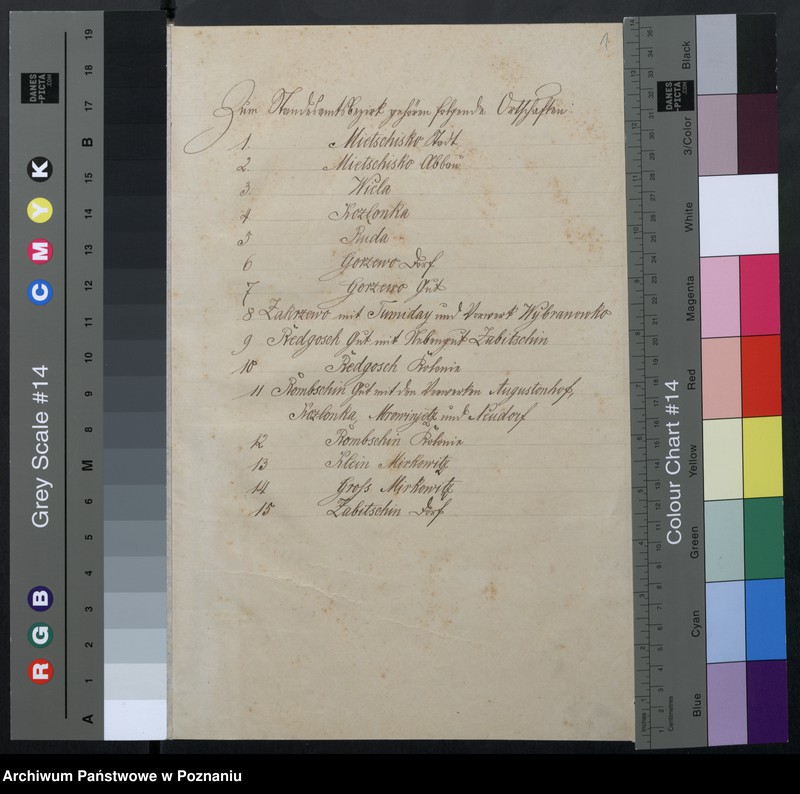 1
Zum Standesamtsbezirk gehören folgende Ortschaften:
1. Mietschisko Stadt
2. Mietschisko Abbau
3. Wiela
4 Kozlonka
5 Ruda
6 Gorzewo Dorf
7 Gorzewo Gut
8 Zakrzewo mit Tumiday und Vorwerk Wybranowko
9 Redgosch Gut mit Nebengut Zabitschin
10 Redgosch Kolonie
11 Rombschin Gut mit den Vorwerken Augustenhof,
Kozlonka, Mrowinjetz und Neudorf
12 Rombschin Kolonie
13 Klein Mirkowitz
14 Gross Mirkowitz
15 Zabitschin Dorf
Grey Scale #14
DANES
-PICTA
.COM
A 1 2 3 4 5 6 M 8 9 10 11 12 13 14 15 B 17 18 19
R G B
C M Y K
Colour Chart #14
DANES
-PICTA
.COM
Blue Cyan Green Yellow Red Magenta White 3/Color Black
Inches
Centimetres
Archiwum Państwowe w Poznaniu